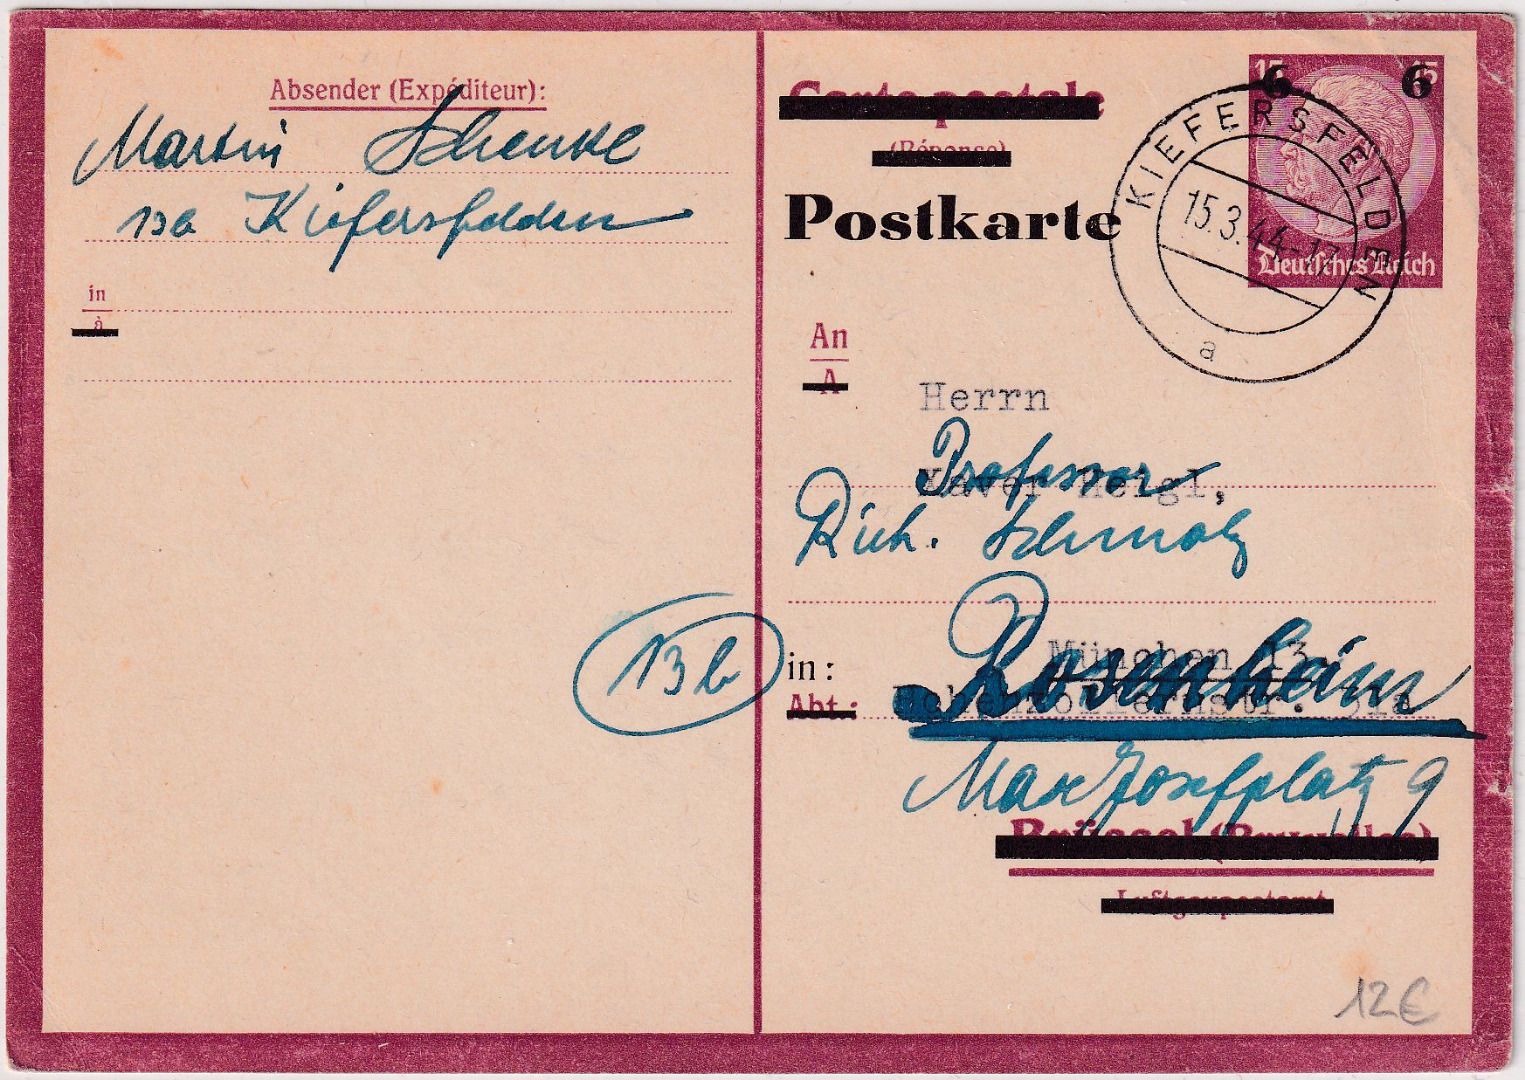 Absender (Expéditeur):
Martin Schenkl
13b Kiefersfelden
in
à
Carte postale
(Réponse)
Postkarte
15 15
6 6
Deutsches Reich
KIEFERSFELDEN
15.3.44-17
a
An
A
Herrn
Xaver Heigl,
Professor
Rich. Schmalz
13b
in:
Abt.:
München 13
Hohenzollernstr.
Rosenheim
Max Josefplatz 9
Brüssel (Bruxelles)
Luftgaupostamt
12€